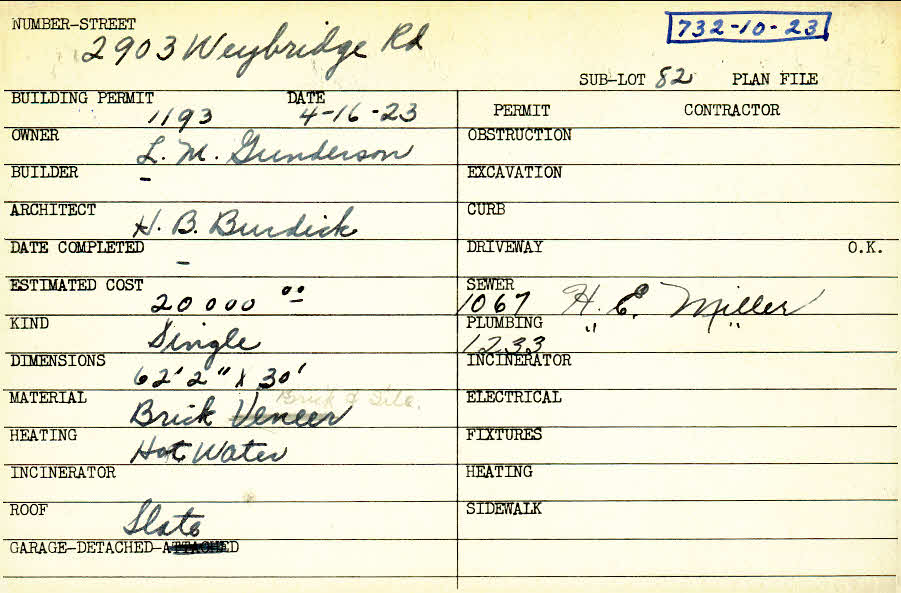 NUMBER-STREET
2903 Weybridge Rd
732-10-23
SUB-LOT 82 PLAN FILE
BUILDING PERMIT DATE
1193 4-16-23
PERMIT CONTRACTOR
OWNER
L. M. Gunderson
OBSTRUCTION
BUILDER
-
EXCAVATION
ARCHITECT
H. B. Burdick
CURB
DATE COMPLETED
-
DRIVEWAY O.K.
ESTIMATED COST
20000 00
SEWER
1067 H. E. Miller
KIND
Single
PLUMBING
1233 " "
DIMENSIONS
62' 2" X 30'
INCINERATOR
MATERIAL
Brick & Tile.
Brick Veneer
ELECTRICAL
HEATING
Hot Water
FIXTURES
INCINERATOR
HEATING
ROOF
Slate
SIDEWALK
GARAGE-DETACHED-ATTACHED